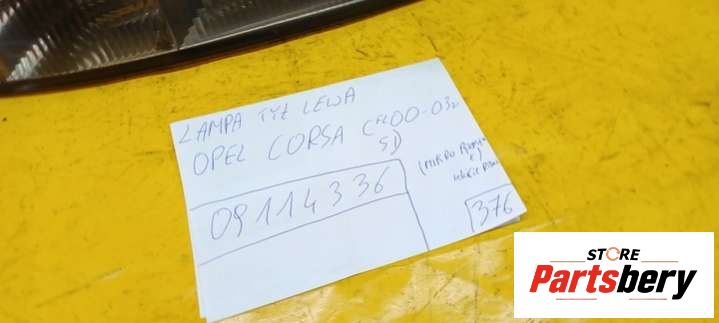 LAMPA TYŁ LEWA
OPEL CORSA C 00-03r
5D
09114336
(MIKRO
376
STORE
Partsbery